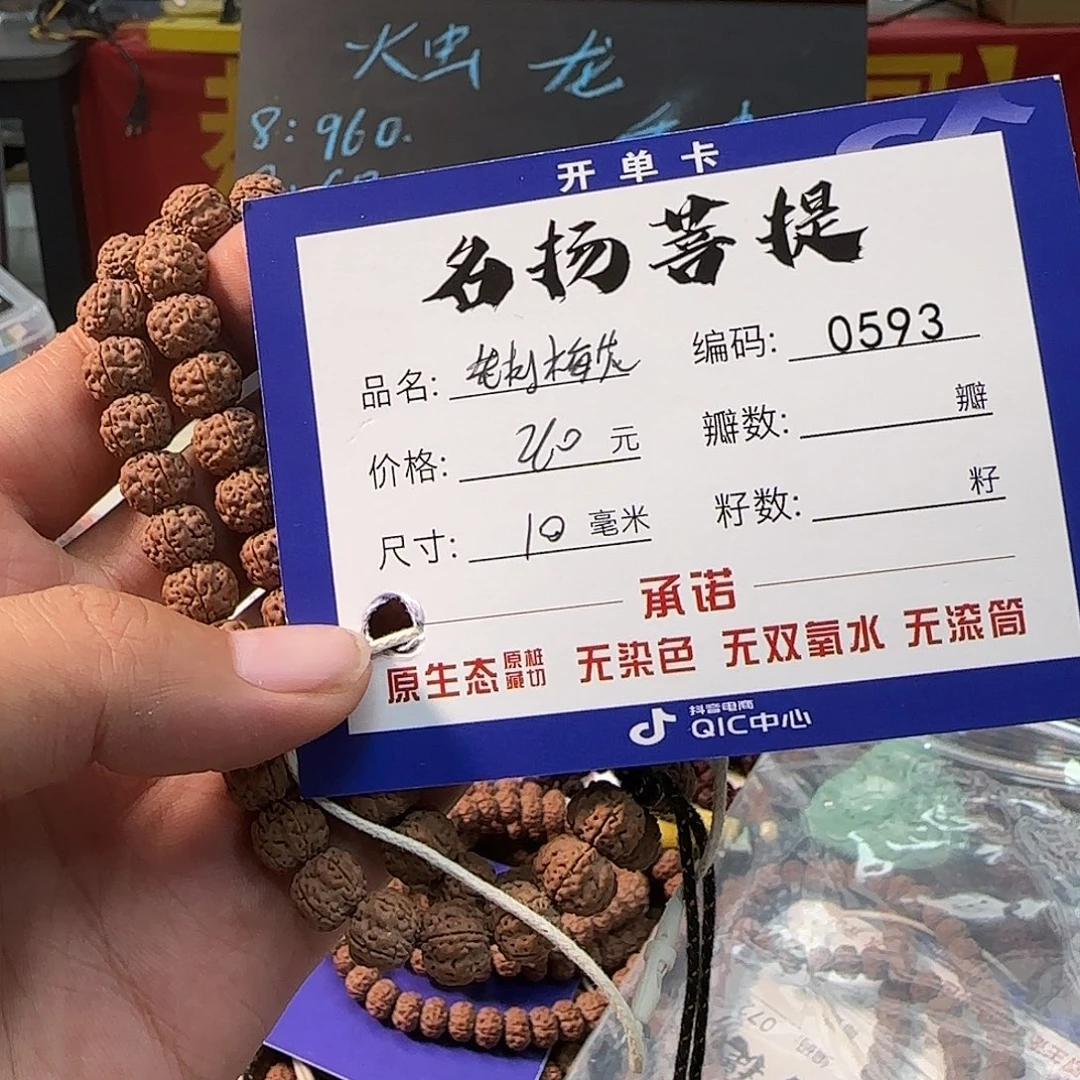 火虫 龙
8: 960.
开单卡
名扬菩提
品名: 老树梅花 编码: 0593
价格: 260 元 瓣数: 瓣
尺寸: 10 毫米 籽数: 籽
承诺
原生态 原桩藏切 无染色 无双氧水 无滚筒
抖音电商
QIC中心